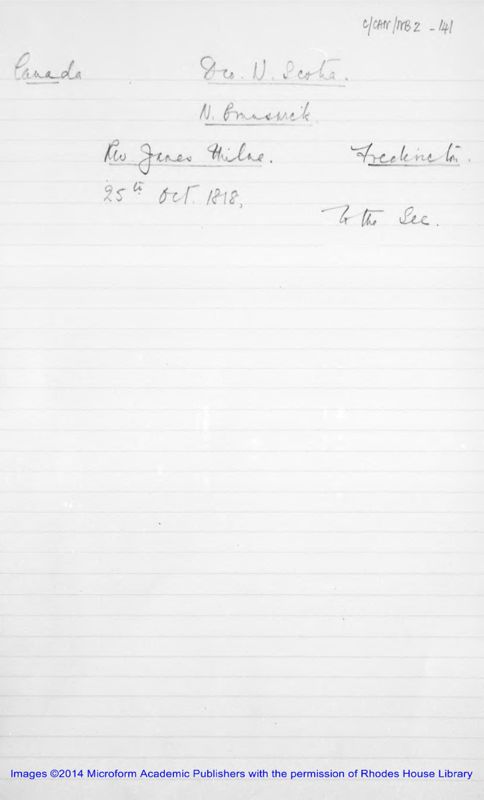 C/CAN/NB 2 - 141
Canada Dio. N. Scotia.
N. Brunswick
Rev James Milne. Fredericton.
25th Oct. 1818,
To the Sec.
Images ©2014 Microform Academic Publishers with the permission of Rhodes House Library